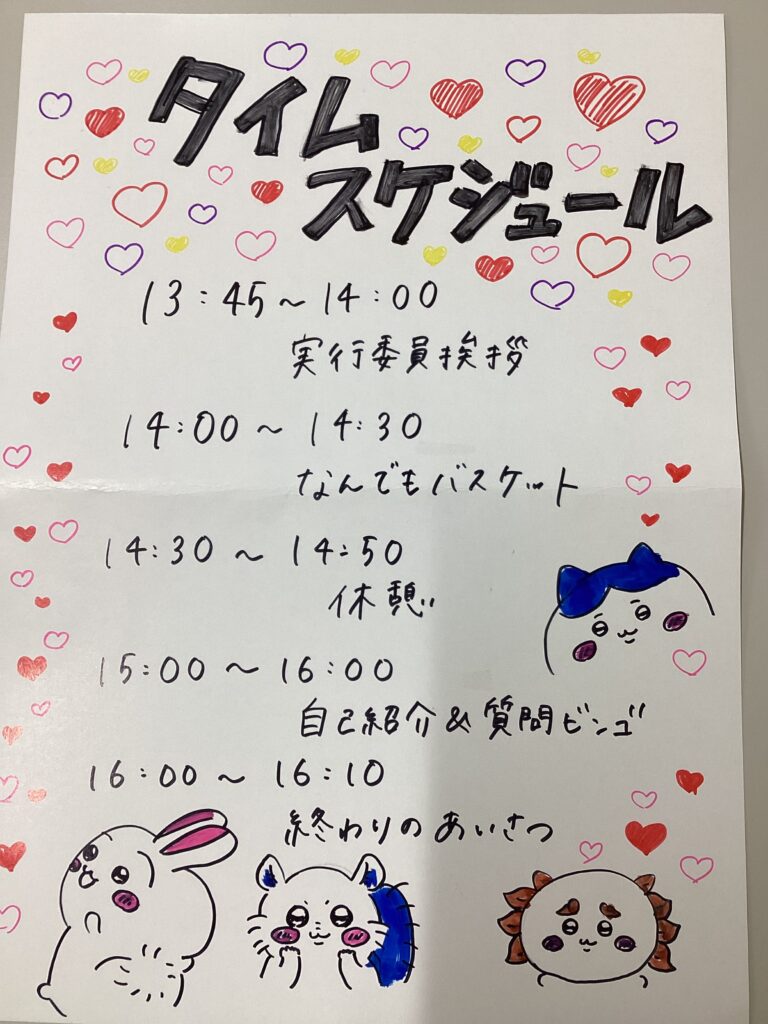 タイム
スケジュール
13:45～14:00
実行委員挨拶
14:00～14:30
なんでもバスケット
14:30～14:50
休憩
15:00～16:00
自己紹介&質問ビンゴ
16:00～16:10
終わりのあいさつ